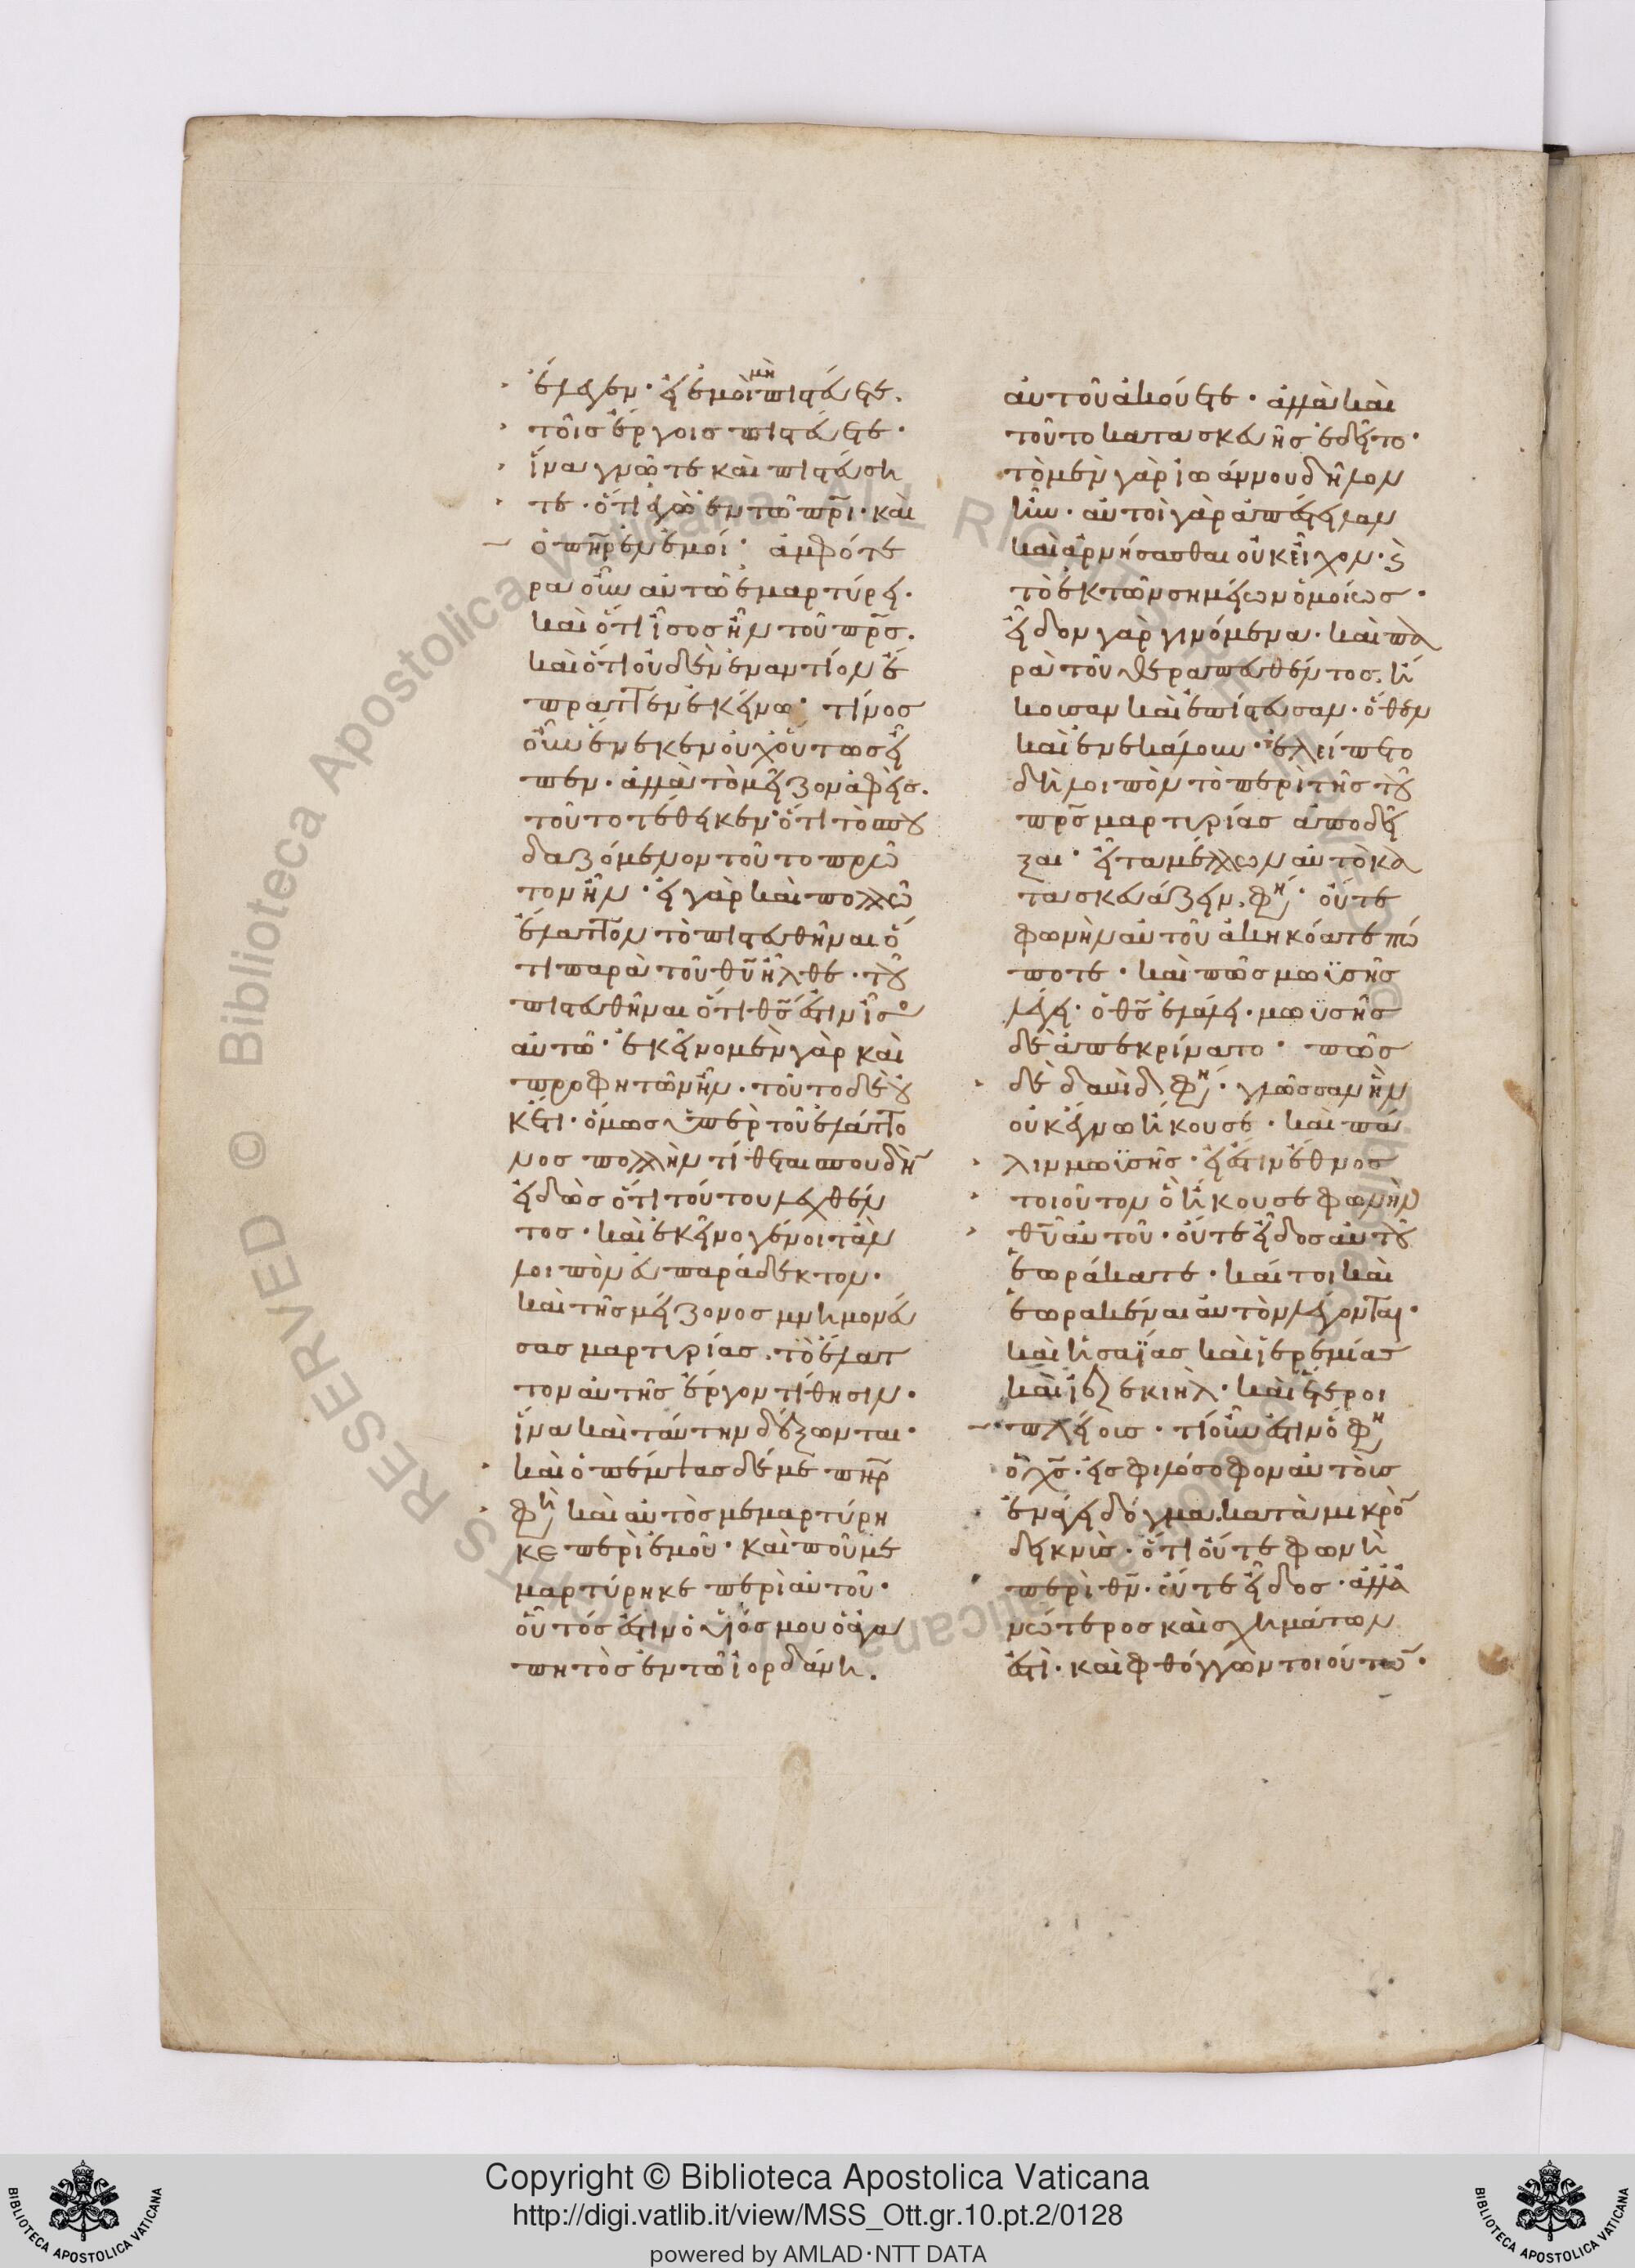 ἔλεγεν· εἰ ἐμοὶ μὴ πιστεύετε.
τοῖς ἔργοις πιστεύετε·
ἵνα γνῶτε καὶ πιστεύση
τε· ὅτι ἐγὼ ἐν τῶ πρι· καὶ
ὁ πηρ ἐν ἐμοί· ἀμφότε
ρα οὖν αὐτῶ ἐμαρτύρει·
καὶ ὅτι ἶσος ἦν τοῦ πρς.
καὶ ὅτι οὐδὲν ἐναντίον ἔ
πραττεν ἐκείνω· τίνος
οὖν ἕνεκεν οὐχ οὕτως εἶ
πεν· ἀλλὰ τὸ μεῖζον ἀφεὶς.
τοῦτο τέθεικεν· ὅτι τὸ σπου
δαζόμενον τοῦτο πρῶ
τον ἦν· εἰ γὰρ καὶ πολλῶ
ἔλαττον τὸ πιστευθῆναι ὅ
τι παρὰ τοῦ θυ ἦλθε· τοῦ
πιστευθῆναι ὅτι θς ἐστιν ἶσο
αὐτῶ· ἐκεῖνο μὲν γὰρ καὶ
προφητῶν ἦν· τοῦτο δὲ οὐ
κέτι· ὅμως ὑπὲρ τοῦ ἐλάττο
νος πολλὴν τίθεται σπουδὴ
εἰδὼς ὅτι τούτου λεχθέν
τος· καὶ ἐκεῖνο γένοιτ ἂν
λοιπὸν εὐπαράδεκτον·
καὶ τῆς μείζονος μνημονεύ
σας μαρτυρίας. τὸ ἔλατ
τον αὐτῆς ἔργον τίθησιν·
ἵνα καὶ ταύτην δέξωνται·
καὶ ὁ πέμψας δέ με πηρ
φη καὶ αὐτὸς μεμαρτύρη
κε περὶ ἐμοῦ· καὶ ποῦ με
μαρτύρηκε περὶ αὐτοῦ·
οὗτός ἐστιν ὁ υἱός μου ὁ ἀγα
πητὸς ἐν τῶ ἰορδάνη.
αὐτοῦ ἀκούετε· ἀλλὰ καὶ
τοῦτο κατασκευῆς ἐδεῖτο·
τὸ μὲν γὰρ ἰωάννου δῆλον
ἦν· αὐτοὶ γὰρ ἀπέστειλαν
καὶ ἀρνήσασθαι οὐκ εἶχον· καὶ
τὸ ἐκ τῶν σημείων ὁμοίως·
εἶδον γὰρ γινόμενα· καὶ πα
ρὰ τοῦ θεραπευθέντος. ἤ
κουσαν καὶ ἐπίστευσαν· ὅθεν
καὶ ἐνεκάλουν· ἐλείπετο
δὴ λοιπὸν τὸ περὶ τῆς τοῦ
πρς μαρτυρίας ἀποδεῖ
ξαι· εἶτα μέλλων αὐτὸ κα
τασκευάζειν. φη· οὔτε
φωνὴν αὐτοῦ ἀκηκόατε πώ
ποτε· καὶ πῶς μωϋσῆς
λέγει· ὁ θς ἐλάλει· μωυσῆς
δὲ ἀπεκρίνατο· πῶς
δὲ δαυὶδ φη· γλῶσσαν ἣν
οὐκ ἔγνω ἤκουσε· καὶ πά
λιν μωϋσῆς· εἰ ἐστιν ἔθνος
τοιοῦτον ὃ ἤκουσε φωνὴν
θυ αὐτοῦ· οὔτε εἶδος αὐτοῦ
ἑωράκατε· καίτοι καὶ
ἑωρακέναι αὐτὸν λέγονται·
καὶ ἡσαΐας καὶ ἱερεμίας
καὶ ἰεζεκιὴλ· καὶ ἕτεροι
πλείους· τί οὖν ἐστιν ὅ φη
ὁ χς· εἰς φιλόσοφον αὐτοὺς
ἐνάγει δόγμα. κατὰ μικρὸ
δεικνὺς· ὅτι οὔτε φωνὴ
περὶ θν· οὔτε εἶδος· ἀλλὰ
ἀνώτερος καὶ σχημάτων
ἐστὶ· καὶ φθόγγων τοιούτω·
Copyright © Biblioteca Apostolica Vaticana
http://digi.vatlib.it/view/MSS_Ott.gr.10.pt.2/0128
powered by AMLAD·NTT DATA
BIBLIOTECA APOSTOLICA VATICANA
BIBLIOTECA APOSTOLICA VATICANA